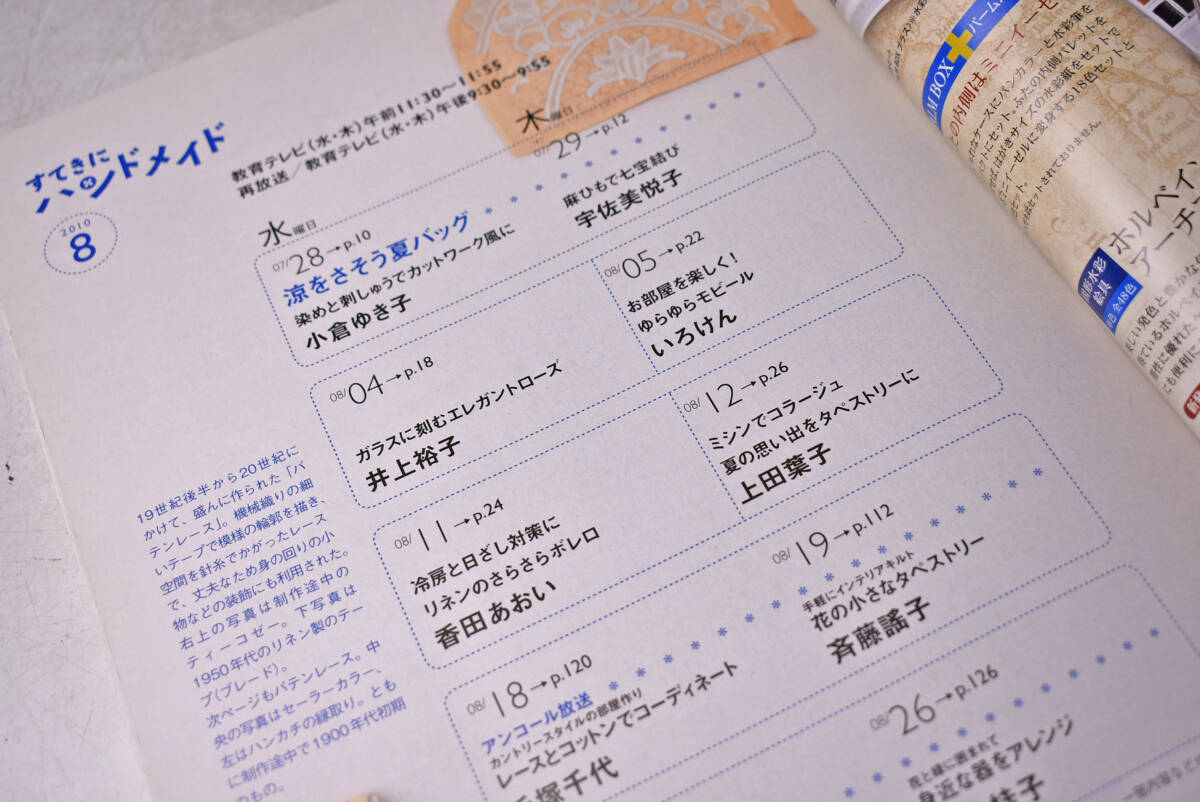 すてきに
ハンドメイド
2010
8
教育テレビ(水・木)午前11:30〜11:55
再放送/教育テレビ(水・木)午後9:30〜9:55
水曜日
木曜日
07/28→p.10
涼をさそう夏バッグ
染めと刺しゅうでカットワーク風に
小倉ゆき子
07/29→p.12
麻ひもで七宝結び
宇佐美悦子
08/04→p.18
ガラスに刻むエレガントローズ
井上裕子
08/05→p.22
お部屋を楽しく!
ゆらゆらモビール
いろけん
08/11→p.24
冷房と日ざし対策に
リネンのさらさらボレロ
香田あおい
08/12→p.26
ミシンでコラージュ
夏の思い出をタペストリーに
上田葉子
08/18→p.120
アンコール放送
カントリースタイルの部屋作り
レースとコットンでコーディネート
塚千代
08/19→p.112
手軽にインテリアキルト
花の小さなタペストリー
斉藤謠子
08/26→p.126
花と緑に囲まれて
身近な器をアレンジ
19世紀後半から20世紀に
かけて、盛んに作られた「バ
テンレース」。機械織りの細
いテープで模様の輪郭を描き、
空間を針糸でかがったレース
で、丈夫なため身の回りの小
物などの装飾にも利用された。
右上の写真は制作途中の
ティーコゼー。下写真は
1950年代のリネン製のテー
プ(ブレード)。
次ページもバテンレース。中
央の写真はセーラーカラー、
左はハンカチの縁取り。とも
に制作途中で1900年代初期
のもの。
LM BOX+パーム
の内側はミニイーゼ
なケースにパンカラーと水彩筆を
トにセット。ふたの内側パレットを
、はがきサイズの水彩紙をセットで
ミニイーゼルに変身する18色セットと
セット。
セットされておりません。
ホルベイ
アーチ
固形水彩
絵具
全48色
しい発色と
ているホル